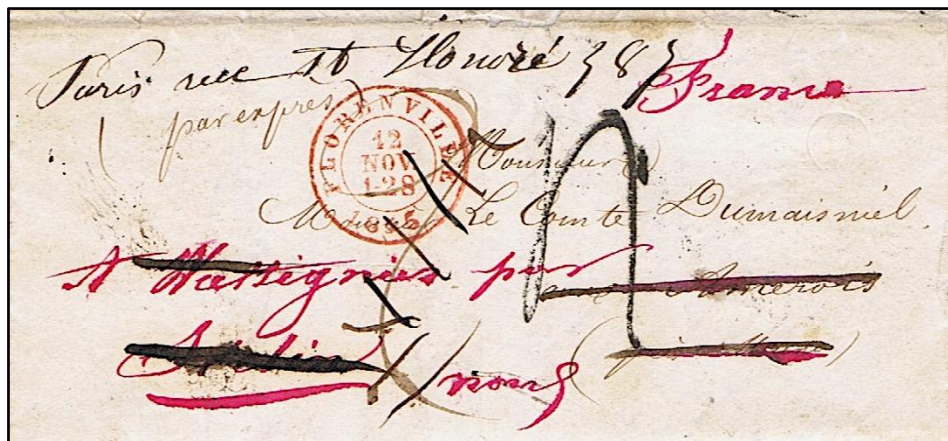 Paris rue St Honoré 387
France
(par exprès)
FLORENVILLE
12
NOV
1-28
Monsieur
Le Comte Dumaisniel
A Wassignies par
aux Amerois
Sedan
(nord)